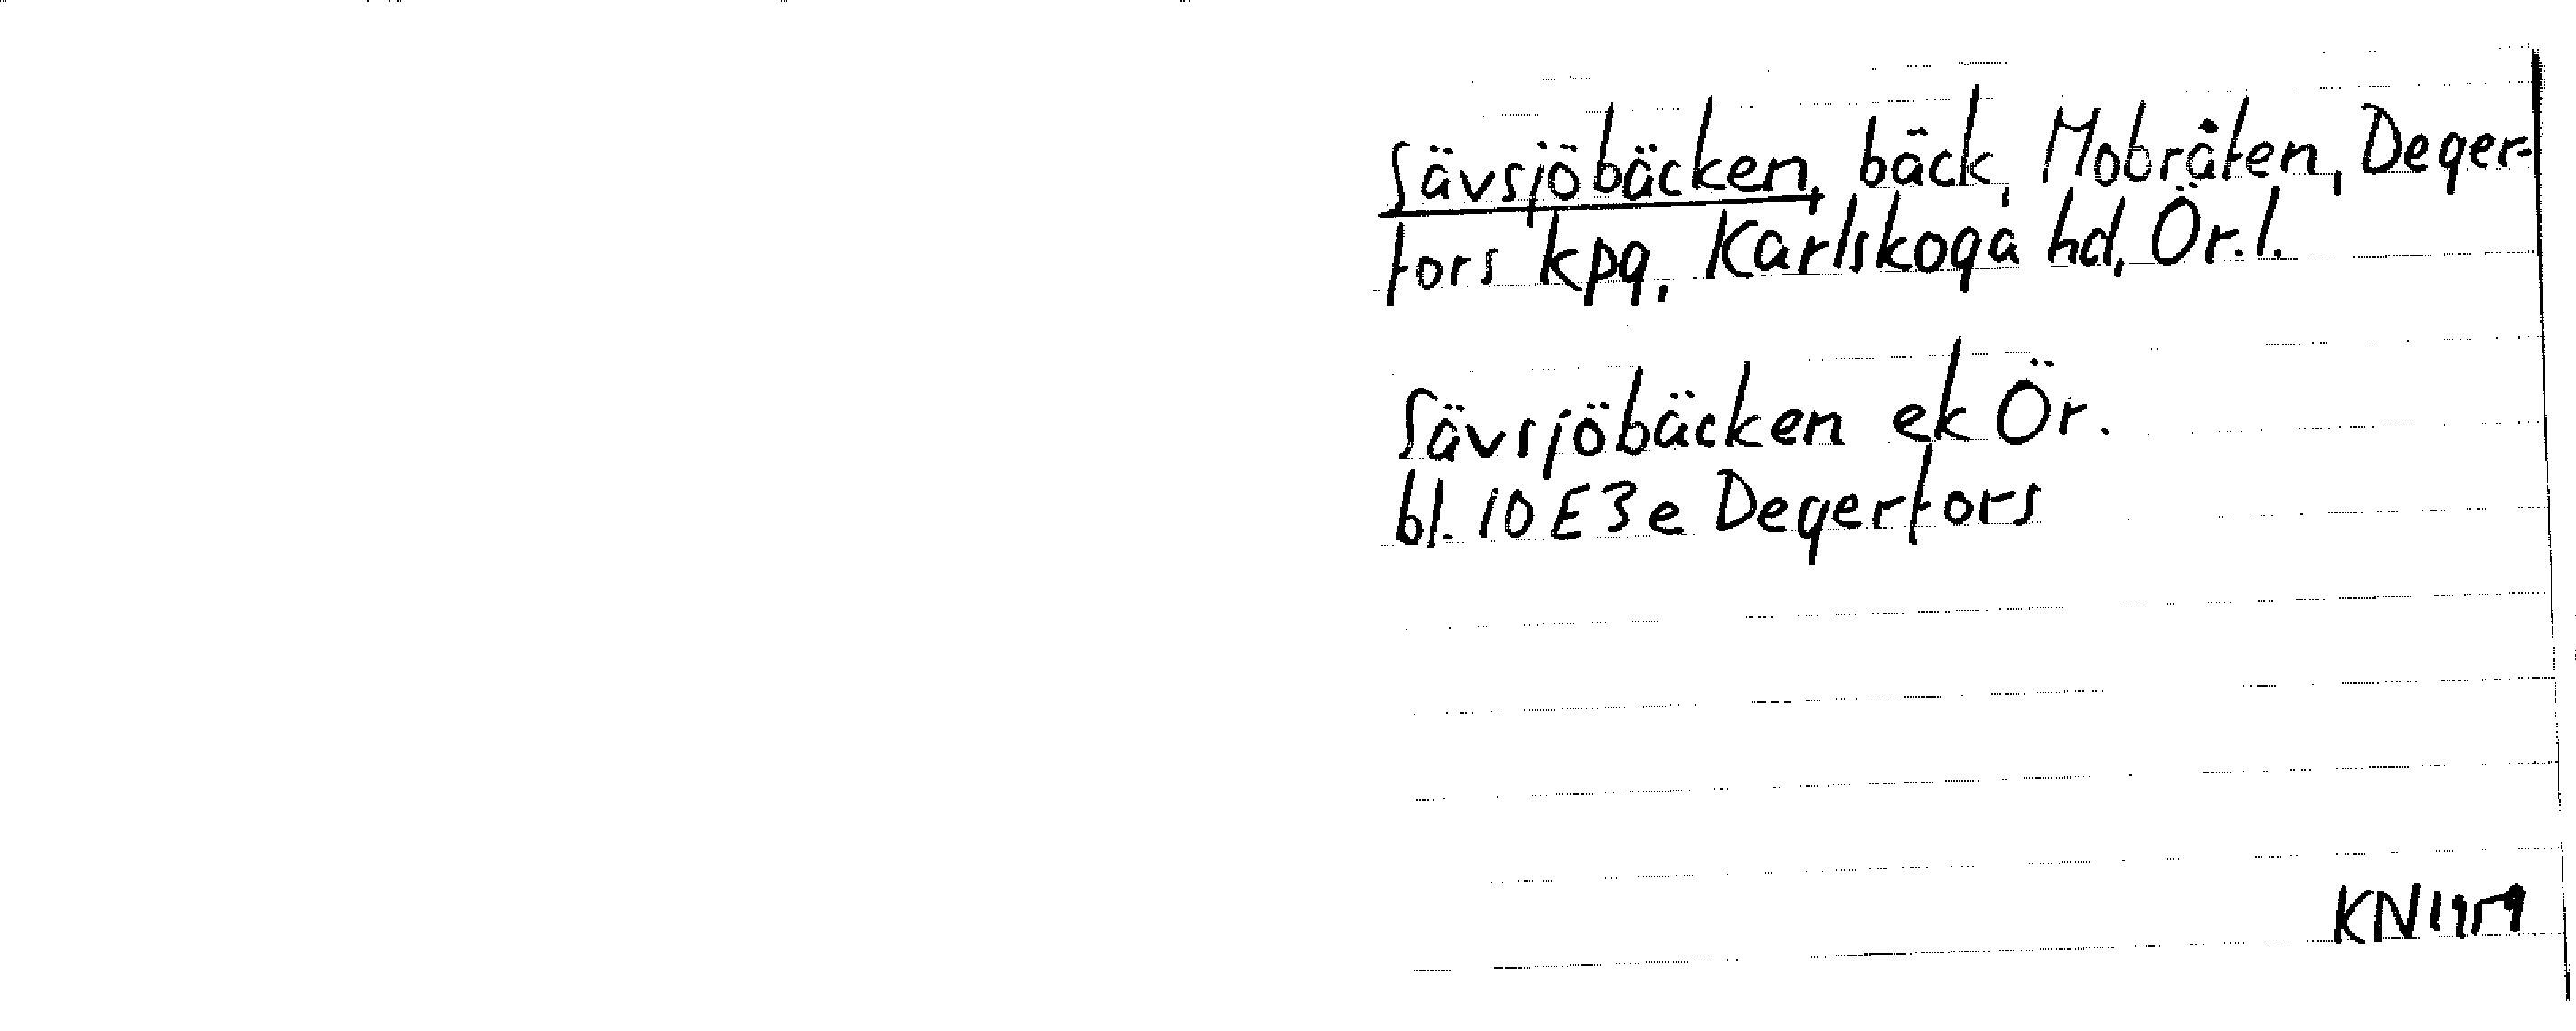 Sävsjöbäcken, bäck, Mobråten, Deger-
fors kpg, Karlskoga hd, Ör. l.
Sävsjöbäcken ek Ör.
bl. 10 E 3 e Degerfors